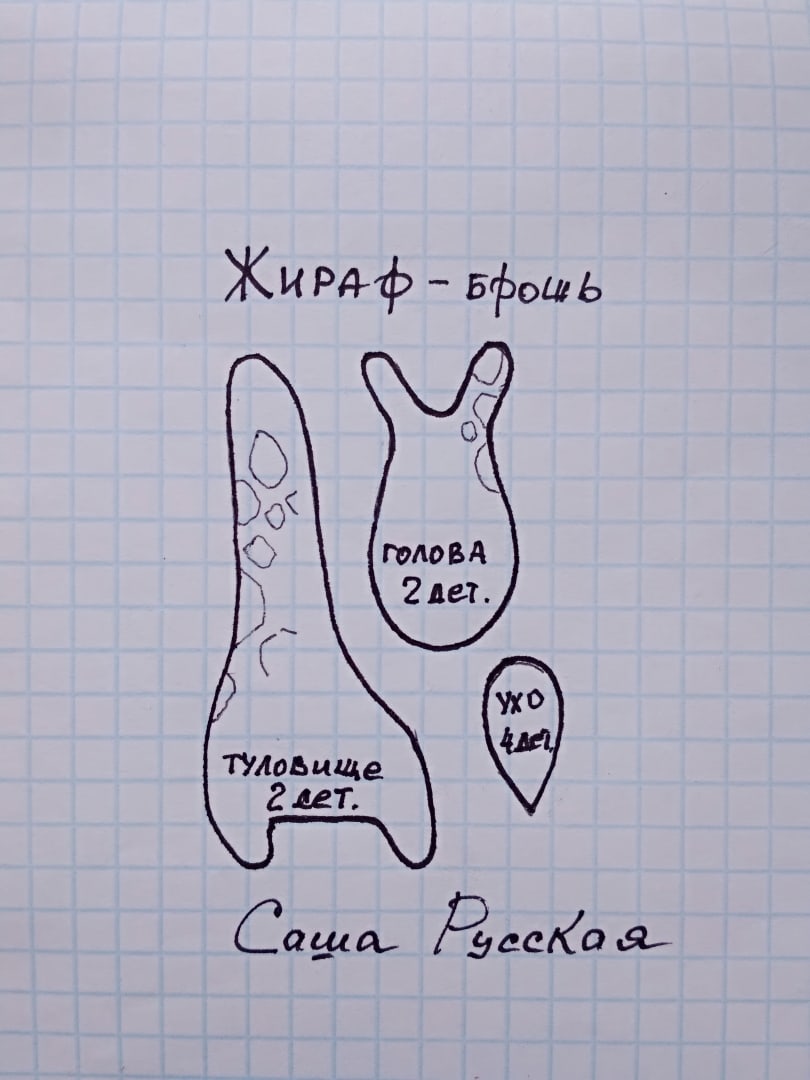 Жираф - брошь
голова
2 дет.
ухо
4 дет.
туловище
2 дет.
Саша Русская